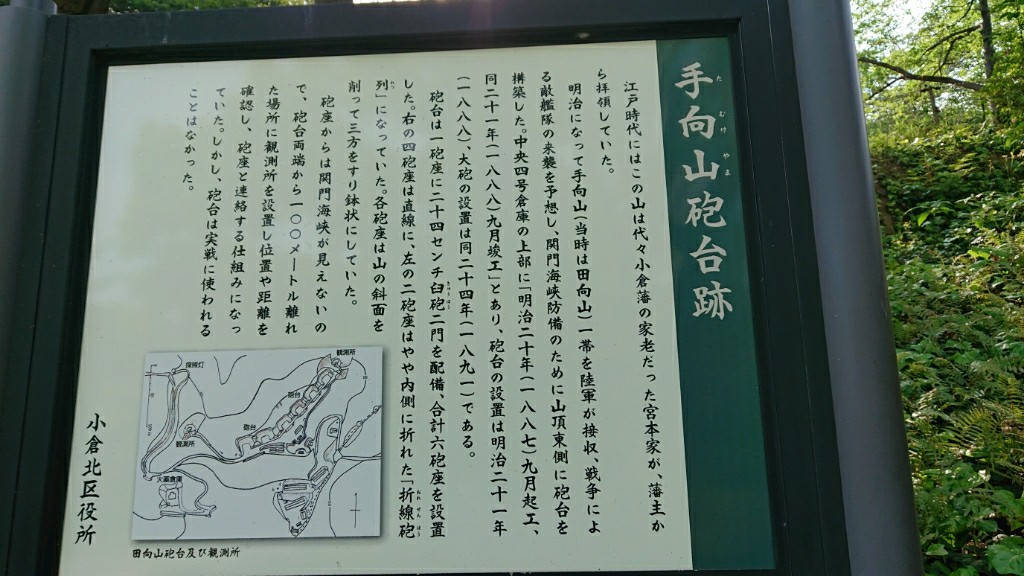 手向山砲台跡
たむけやま
江戸時代にはこの山は代々小倉藩の家老だった宮本家が、藩主か
ら拝領していた。
明治になって手向山(当時は田向山)一帯を陸軍が接収、戦争によ
る敵艦隊の来襲を予想し、関門海峡防備のために山頂東側に砲台を
構築した。中央四号倉庫の上部に「明治二十年(一八八七)九月起工、
同二十一年(一八八八)九月竣工」とあり、砲台の設置は明治二十一年
(一八八八)、大砲の設置は同二十四年(一八九一)である。
砲台は一砲座に二十四センチ臼砲二門を配備、合計六砲座を設置
きゅうほう
した。右の四砲座は直線に、左の二砲座はやや内側に折れた「折線砲
おれせんほう
列」になっていた。各砲座は山の斜面を
れつ
削って三方をすり鉢状にしていた。
砲座からは関門海峡が見えないの
で、砲台両端から一〇〇メートル離れ
た場所に観測所を設置し位置や距離を
確認し、砲座と連絡する仕組みになっ
ていた。しかし、砲台は実戦に使われる
ことはなかった。
探照灯
観測所
砲台
砲台
観測所
火薬倉庫
田向山砲台及び観測所
小倉北区役所